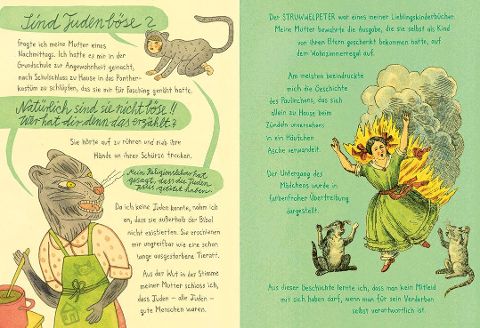 Sind Juden böse?
fragte ich meine Mutter eines
Nachmittags. Ich hatte es mir in der
Grundschule zur Angewohnheit gemacht,
nach Schulschluss zu Hause in das Panther-
kostüm zu schlüpfen, das sie mir für Fasching genäht hatte.
Natürlich sind sie nicht böse!!
Wer hat dir denn das erzählt?
Sie hörte auf zu rühren und rieb ihre
Hände an ihrer Schürze trocken.
Mein Religionslehrer hat
gesagt, dass die Juden
Jesus getötet haben.
Da ich keine Juden kannte, nahm ich
an, dass sie außerhalb der Bibel
nicht existierten. Sie erschienen
mir ungreifbar wie eine schon
lange ausgestorbene Tierart.
Aus der Wut in der Stimme
meiner Mutter schloss ich,
dass Juden – alle Juden –
gute Menschen waren.
Der STRUWWELPETER war eines meiner Lieblingskinderbücher.
Meine Mutter bewahrte die Ausgabe, die sie selbst als Kind
von ihren Eltern geschenkt bekommen hatte, auf
dem Wohnzimmerregal auf.
Am meisten beeindruckte
mich die Geschichte
des Paulinchens, das sich
allein zu Hause beim
Zündeln unversehens
in ein Häufchen
Asche verwandelt.
Der Untergang des
Mädchens wurde in
farbenfroher Übertreibung
dargestellt.
Aus dieser Geschichte lernte ich, dass man kein Mitleid
mit sich haben darf, wenn man für sein Verderben
selbst verantwortlich ist.